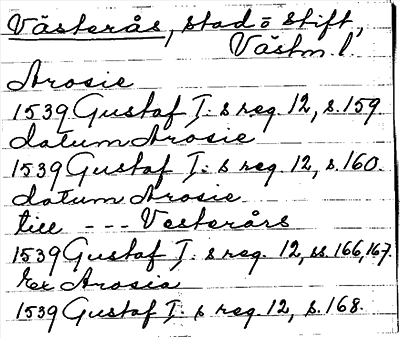 Västerås, stad o stift,
Västm. l.
Arosie
1539 Gustaf I: s reg. 12, s. 159.
datum Arosie
1539 Gustaf I: s reg. 12, s. 160.
datum Arosie
till --- Vesterårs
1539 Gustaf I: s reg. 12, ss. 166, 167.
Ex Arosia
1539 Gustaf I: s reg. 12, s. 168.